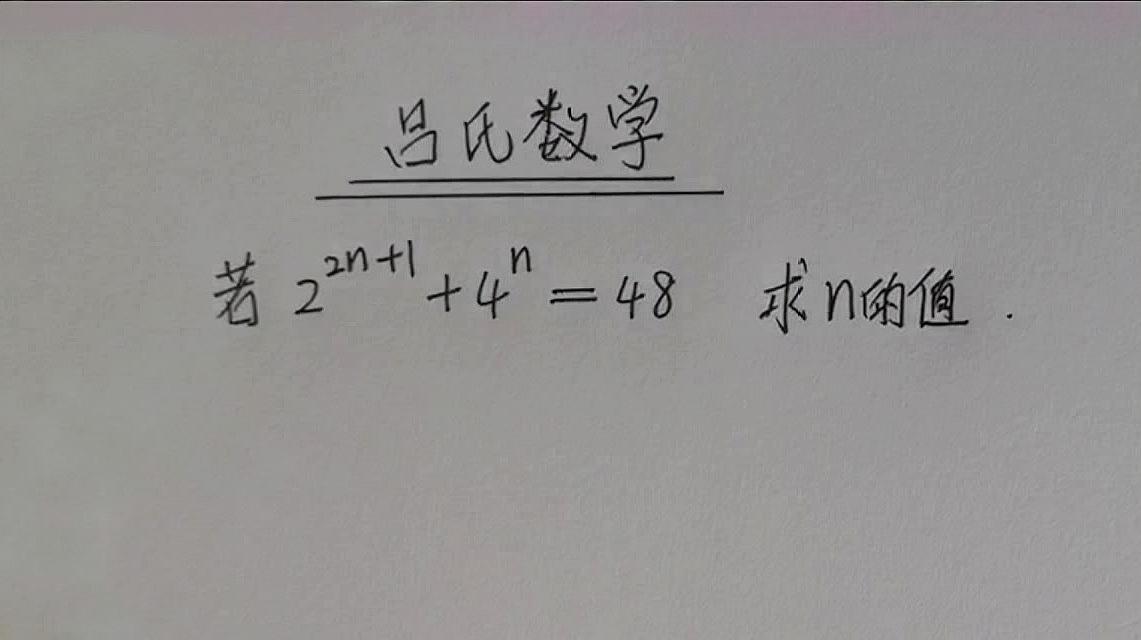 吕氏数学
若 2^{2n+1} + 4^n = 48 求n的值.